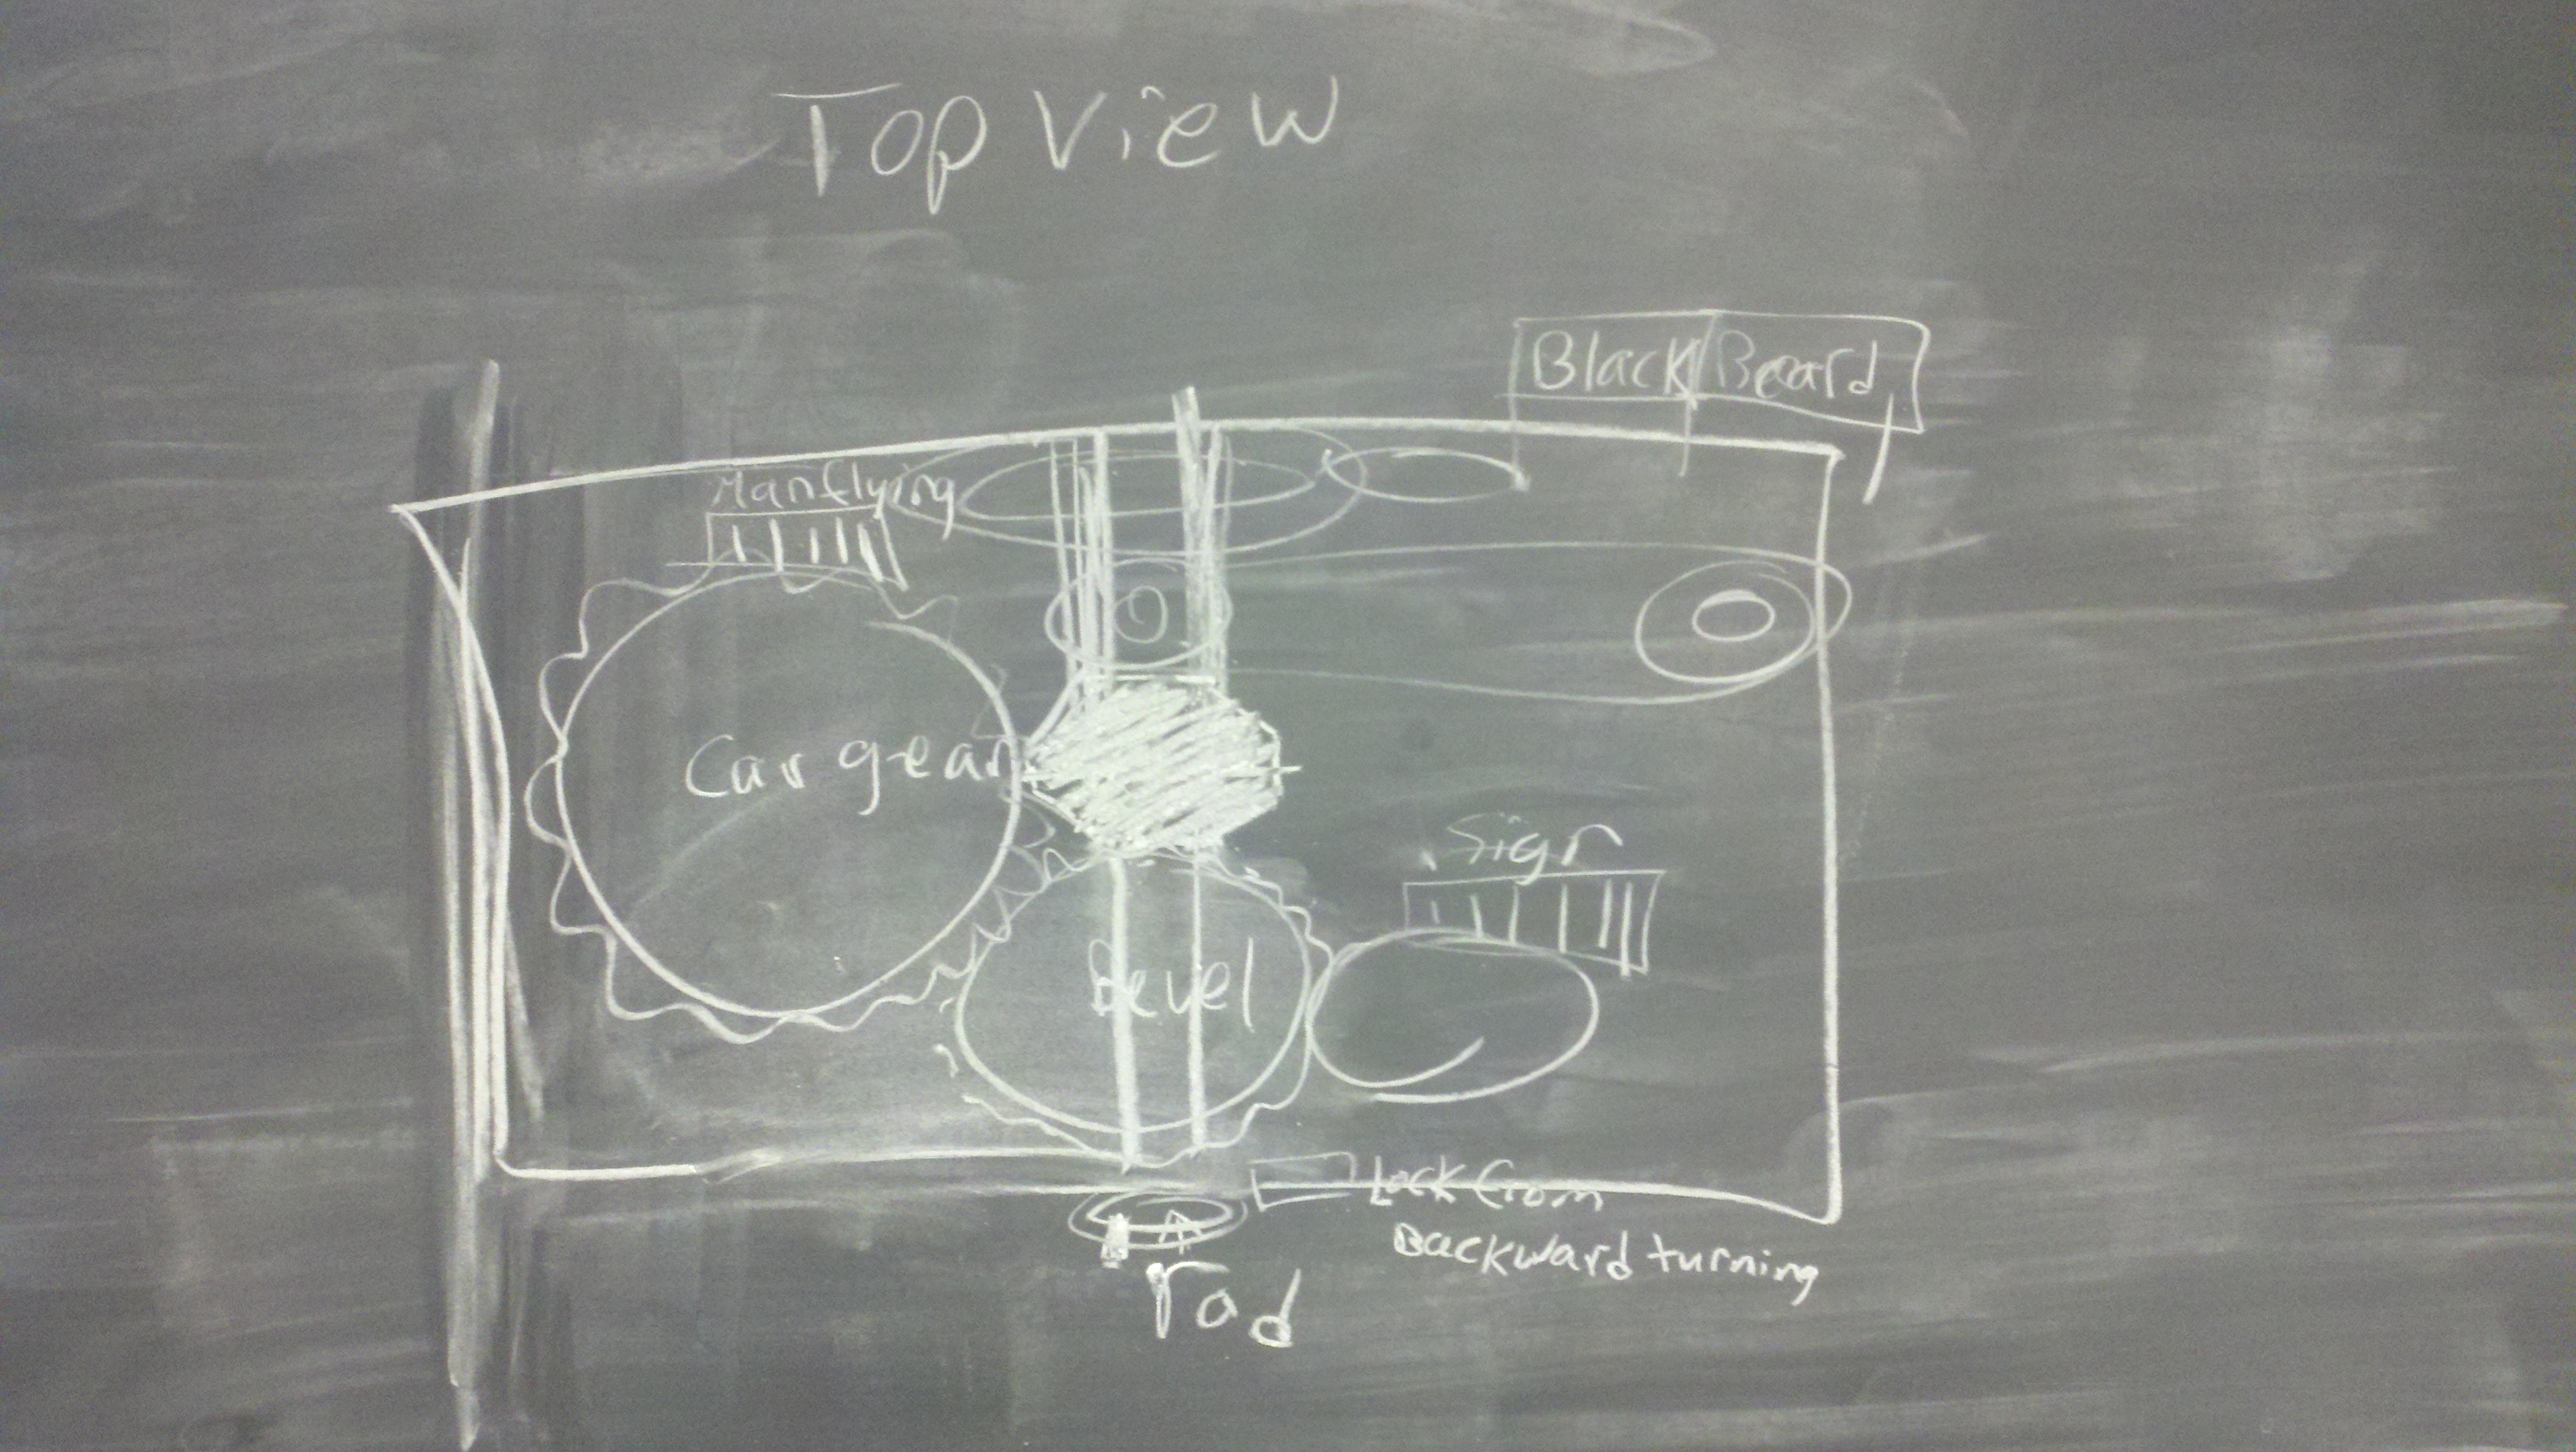 Top View
Black Board
Manflying
Car gear
Sign
Bevel
Lock from
Backward turning
rad